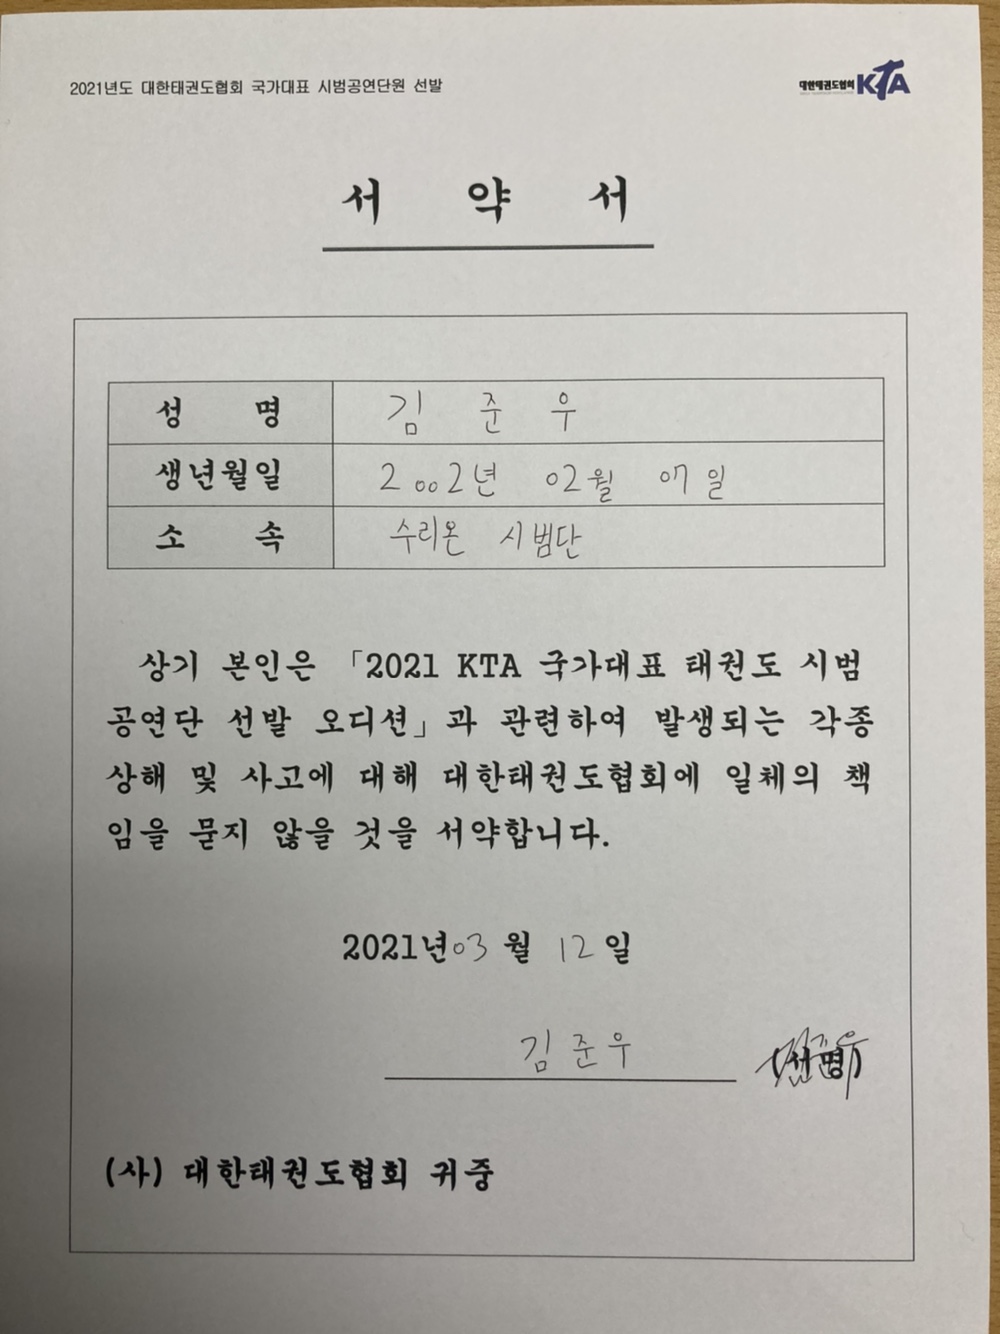 2021년도 대한태권도협회 국가대표 시범공연단원 선발
대한태권도협회 KTA
서 약 서
성 명 김 준 우
생년월일 2002년 02월 07일
소 속 수리온 시범단
상기 본인은 「2021 KTA 국가대표 태권도 시범
공연단 선발 오디션」과 관련하여 발생되는 각종
상해 및 사고에 대해 대한태권도협회에 일체의 책
임을 묻지 않을 것을 서약합니다.
2021년 03 월 12 일
김 준 우 (서명)
(사) 대한태권도협회 귀중